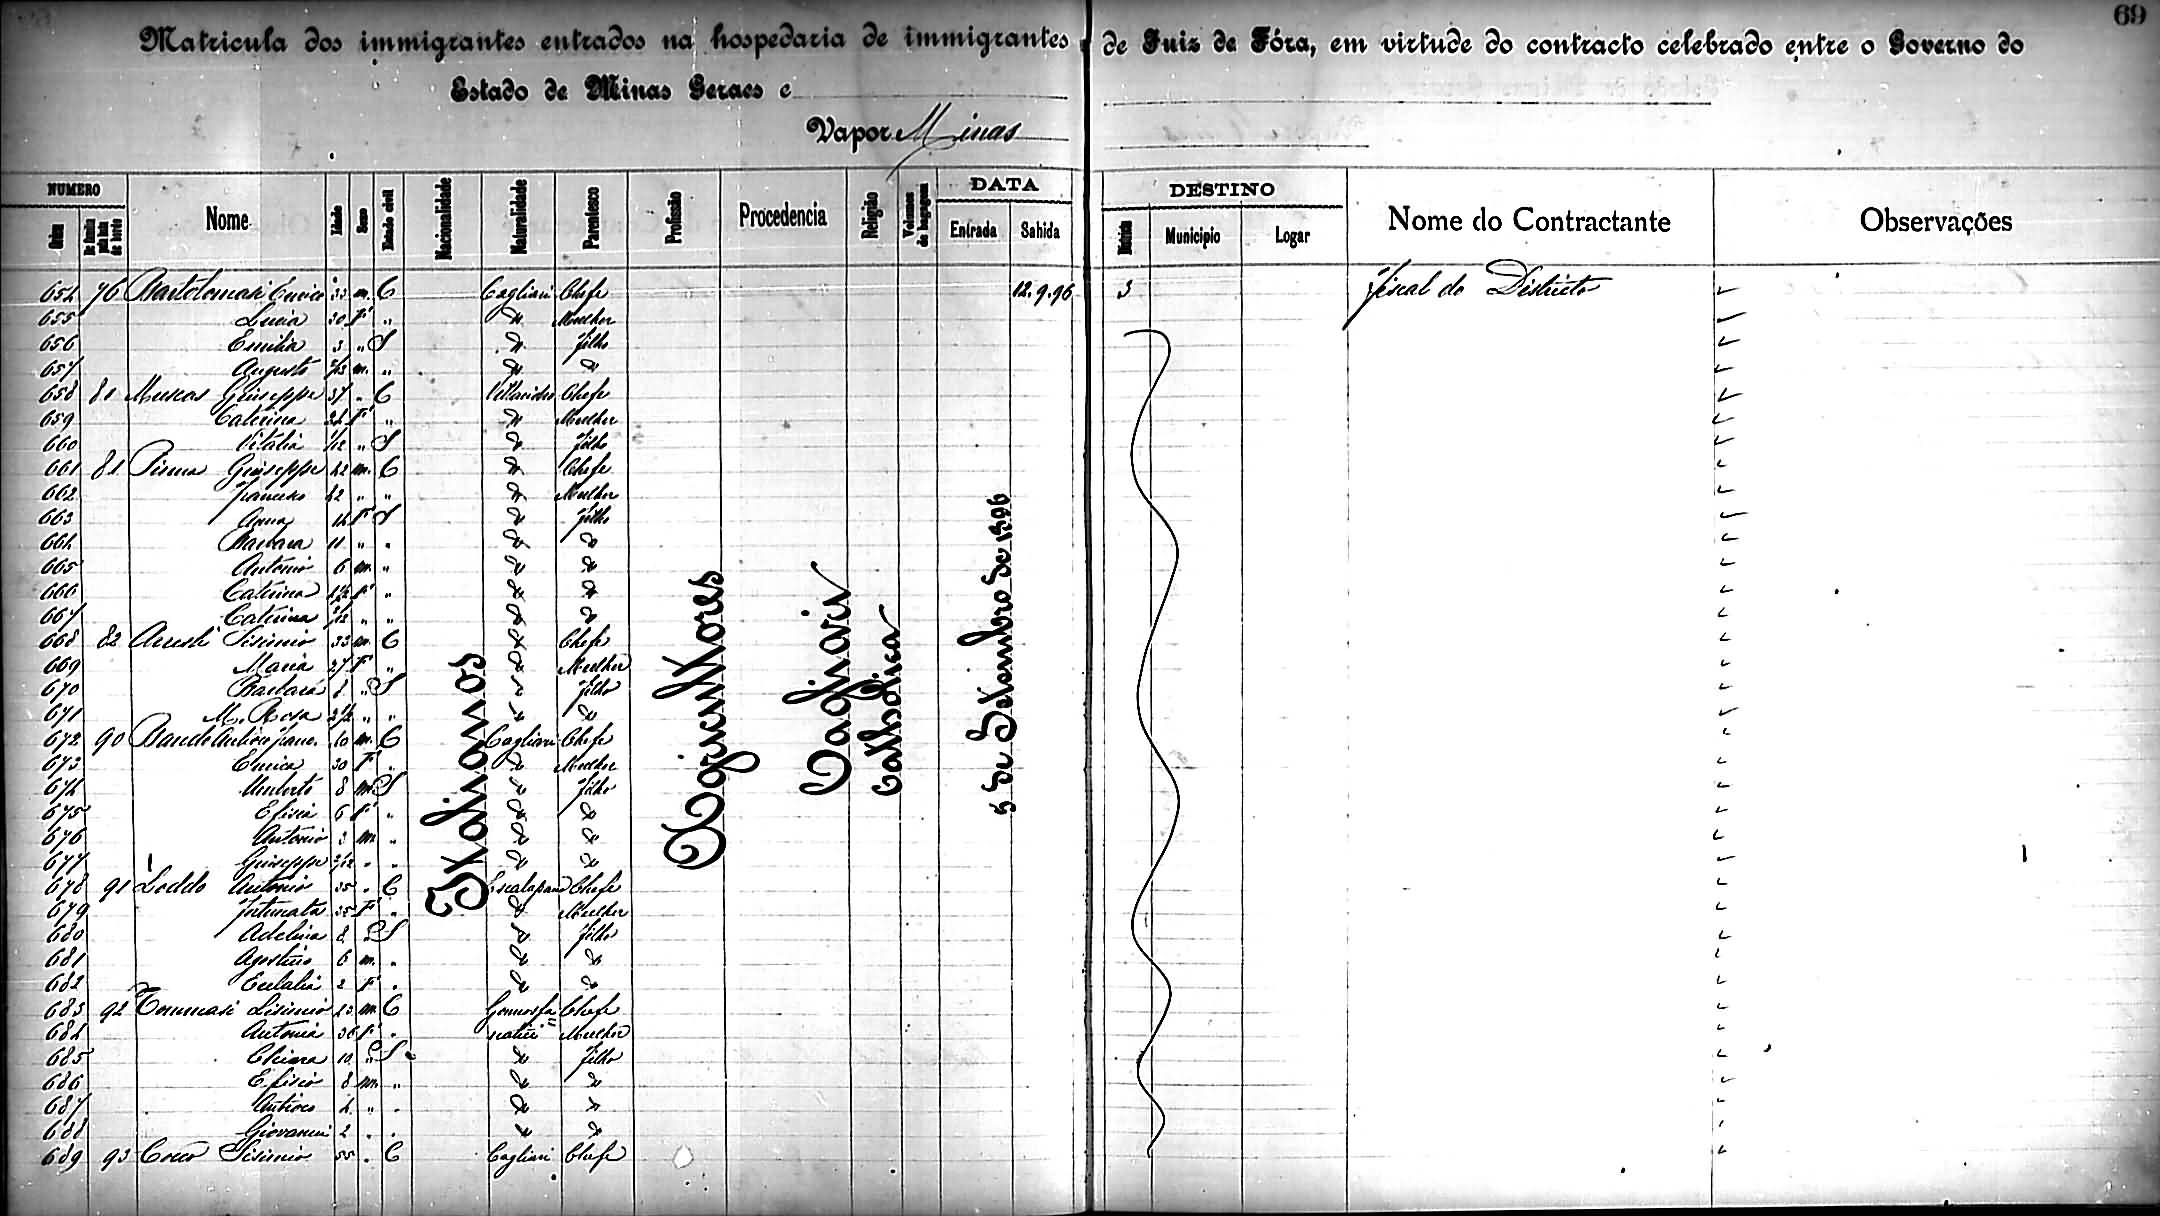 69
Matricula dos immigrantes entrados na hospedaria de immigrantes de Juiz de Fóra, em virtude do contracto celebrado entre o Governo do
Estado de Minas Geraes e
Vapor Minas
NUMERO Nome Idade Sexo Estado civil Nacionalidade Naturalidade Parentesco Profissão Procedencia Religião Volumes de bagagem DATA DESTINO Nome do Contractante Observações
Ordem Entrada Sahida Municipio Logar
654 76 33 m. C Cagliari Chefe 12.9.96 3 Fiscal do Districto
655 Lucia 30 F " " Mulher
656 Emilia 3 " S " Filho
657 Augusto m. " " "
658 81 Muscas Giuseppe 37 " C Chefe
659 Caterina 24 F " " Mulher
660 Vitalia " S " Filho
661 81 Giuseppe 42 m. C " Chefe
662 42 " " " Mulher
663 Anna 14 F S " Filho
664 Barbara 11 " " " "
665 Antonio 6 m. " " "
666 Caterina F " " "
667 Caterina " " " "
668 82 Sisinnio 33 m. C " Chefe
669 Maria 27 F " " Mulher
670 Barbara 8 " S " Filho
671 M. Rosa 2 1/2 " " " "
672 90 40 m. C Cagliari Chefe
673 Enrica 30 F " " Mulher
674 Umberto 8 m S " Filho
675 Efisia 6 F " " "
676 Antonio 3 m. " " "
677 Giuseppe " " " "
678 91 Loddo Antonio 35 " C Chefe
679 Fortunata 35 F " " Mulher
680 Adelina 8 " S " Filho
681 Agostino 6 m. " " "
682 Eulalia 2 F " " "
683 92 Tommasi Sisinnio 43 m. C Chefe
684 Antonia 36 F " Mulher
685 Chiara 10 " S " Filho
686 Efisio 8 m. " " "
687 Antioco 4 " " " "
688 Giovanni 2 " " " "
689 93 Cocco Sisinnio 55 " C Cagliari Chefe
Italianos
Agricultores
Cagliari
Catholica
5 de Setembro de 1896